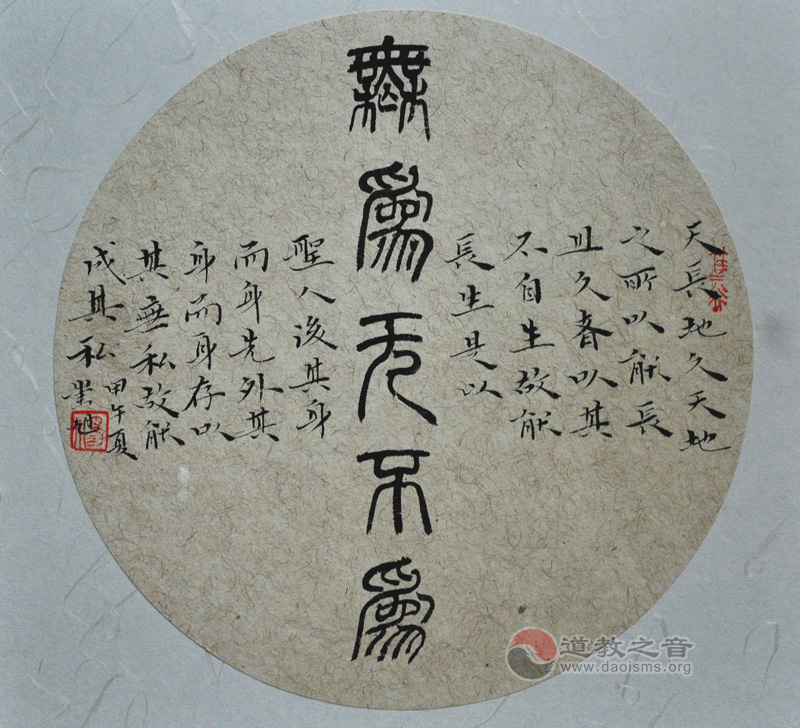 無為无不為
天長地久天地
之所以能長
且久者以其
不自生故能
長生是以
聖人後其身
而身先外其
身而身存以
其無私故能
成其私
甲午夏
道教之音
www.daoisms.org